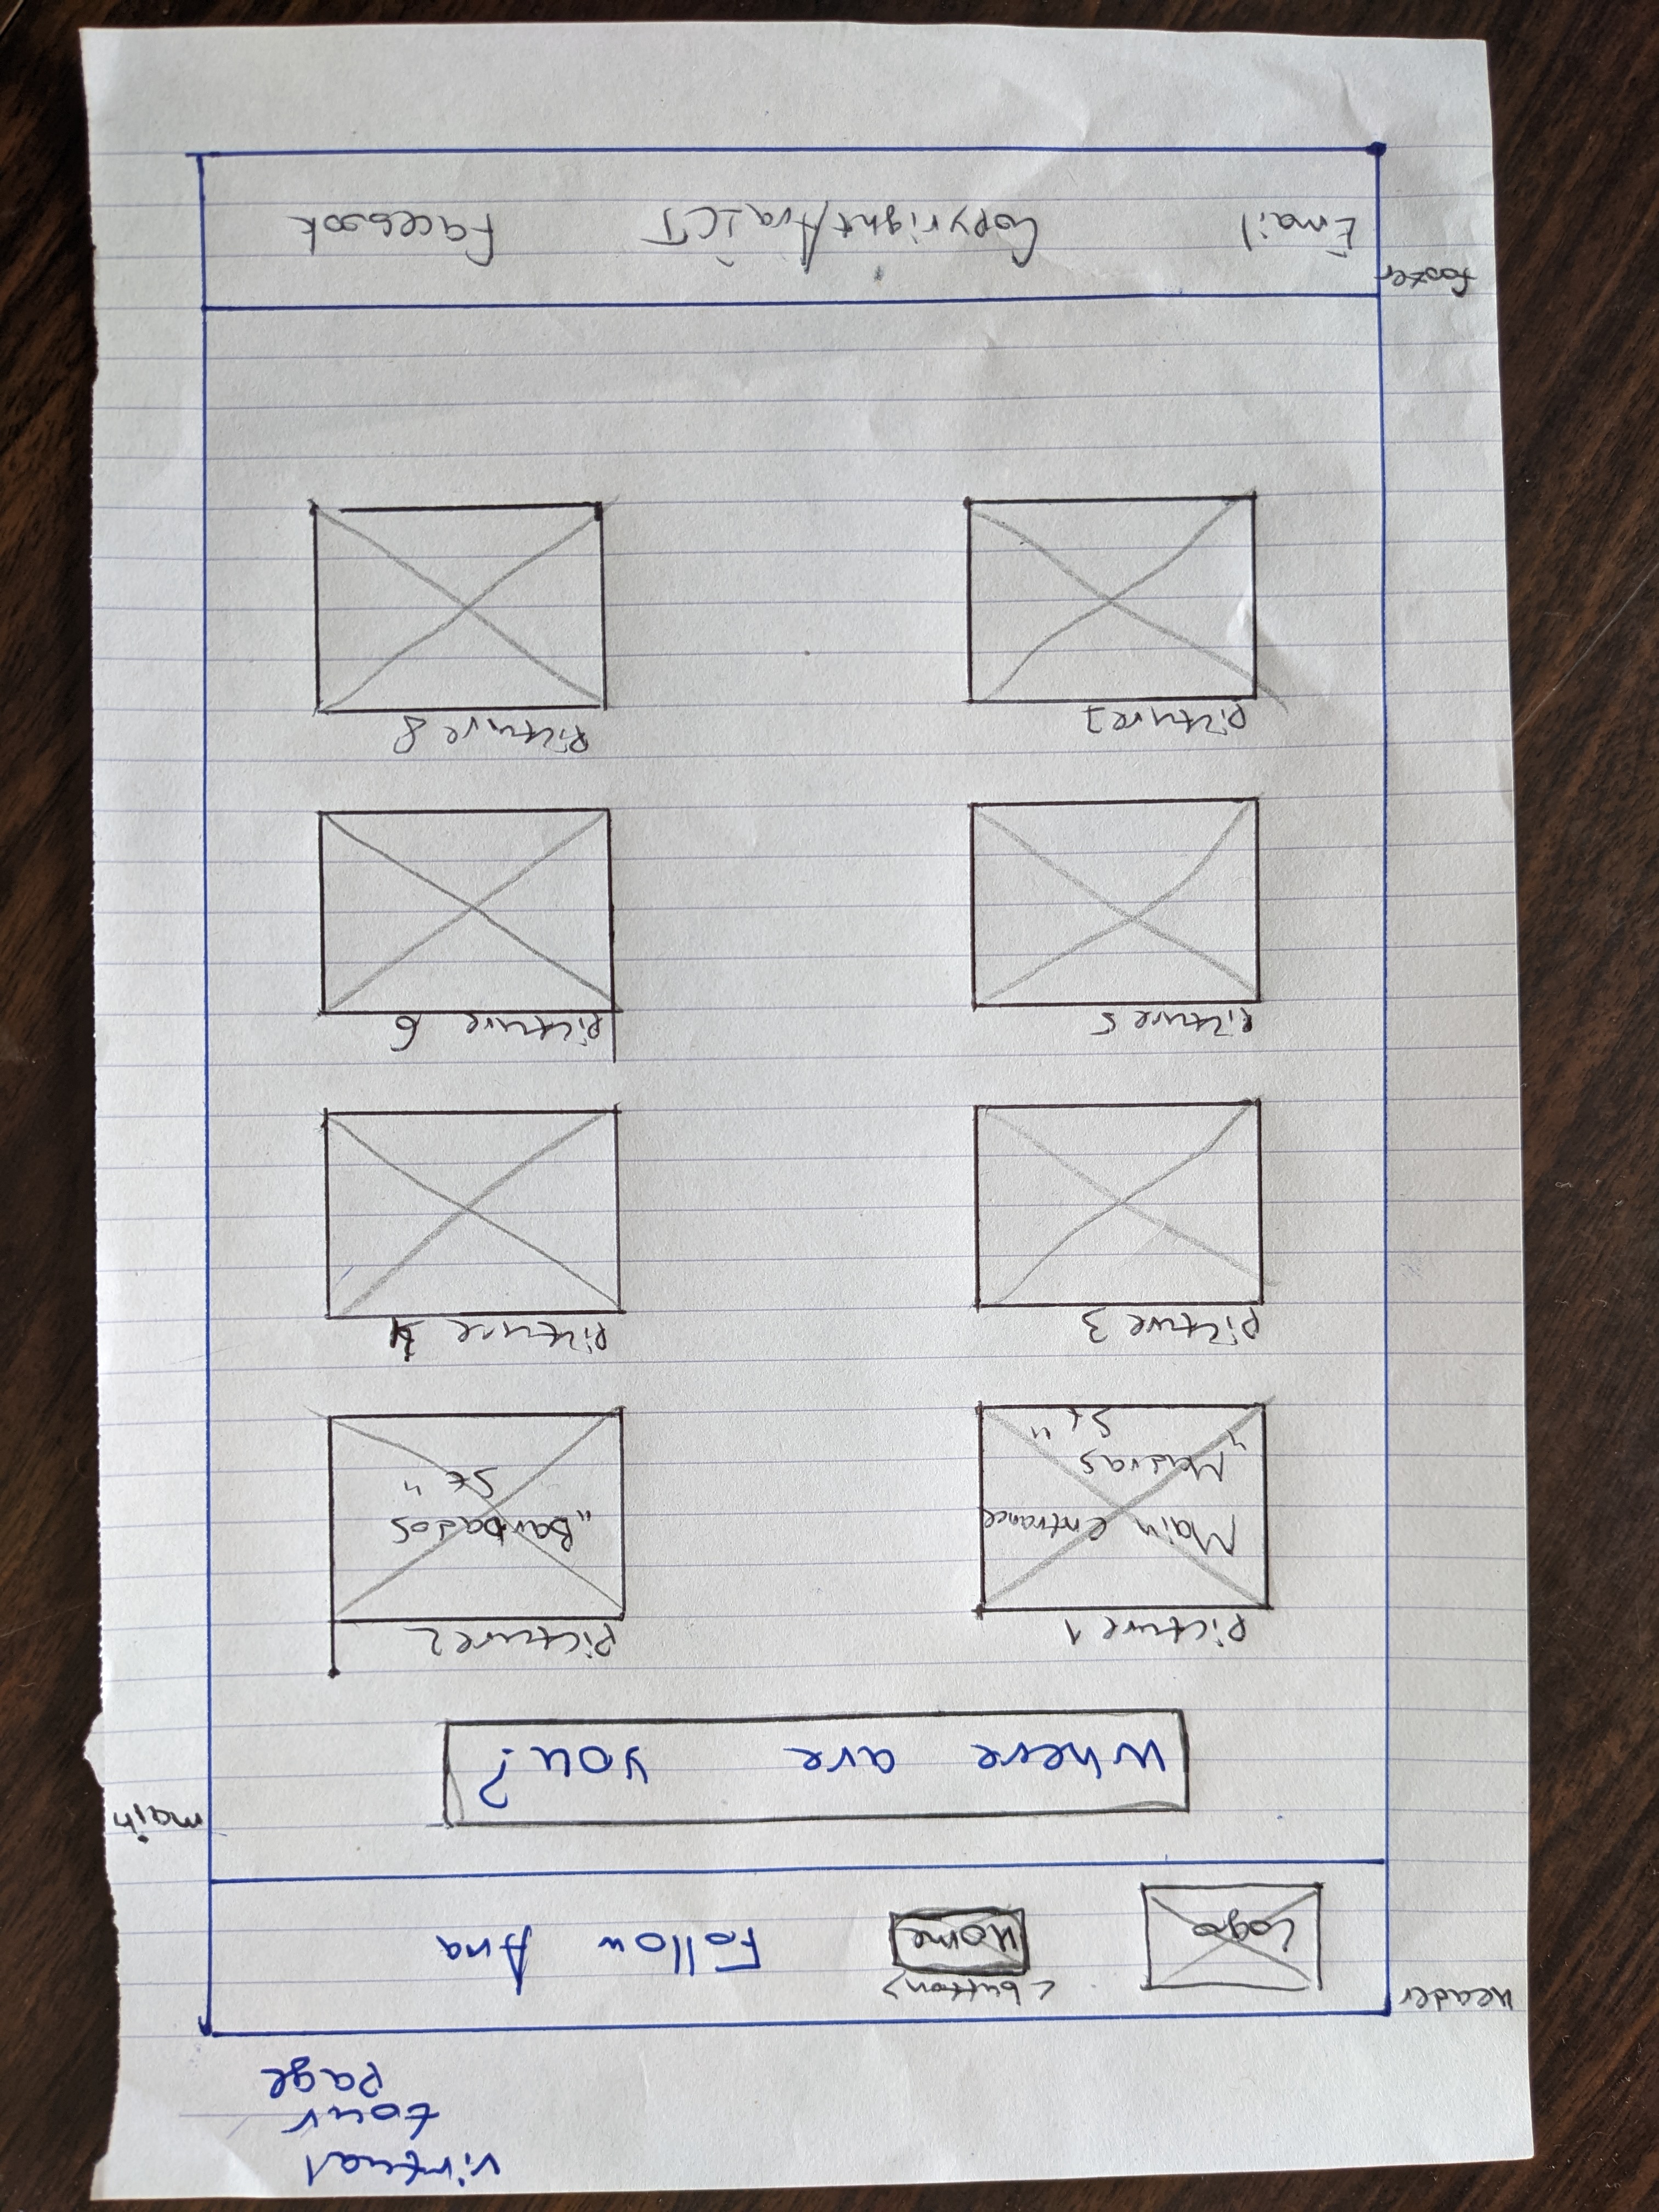 virtual
tour
page
header
Logo
<button>
Home
Follow Ara
main
where are you?
picture 1
picture 2
Main entrance
„Madras
St"
„Barbados
St"
picture 3
picture 4
picture 5
picture 6
picture 7
picture 8
footer
Email
Copyright/Ara ICT
Facebook